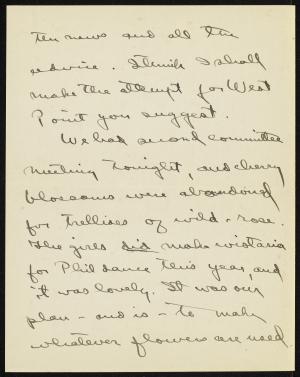 ten news and all the
advice. I think I shall
make the attempt for West
Point you suggest.
We had second committee
meeting tonight, and cherry
blossoms were abandoned
for trellises of wild-rose.
The girls did make wistaria
for Phil dance this year, and
it was lovely. It was our
plan - and is - to make
whatever flowers are used